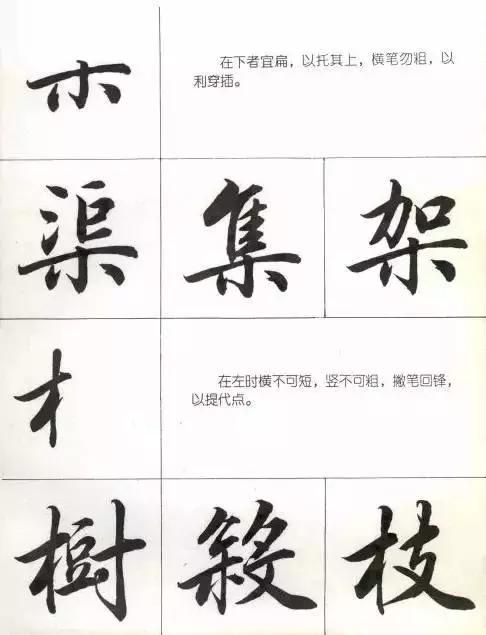 木
在下者宜扁，以托其上，横笔勿粗，以
利穿插。
渠 集 架
木
在左时横不可短，竖不可粗，撇笔回锋，
以提代点。
樹 殺 枝